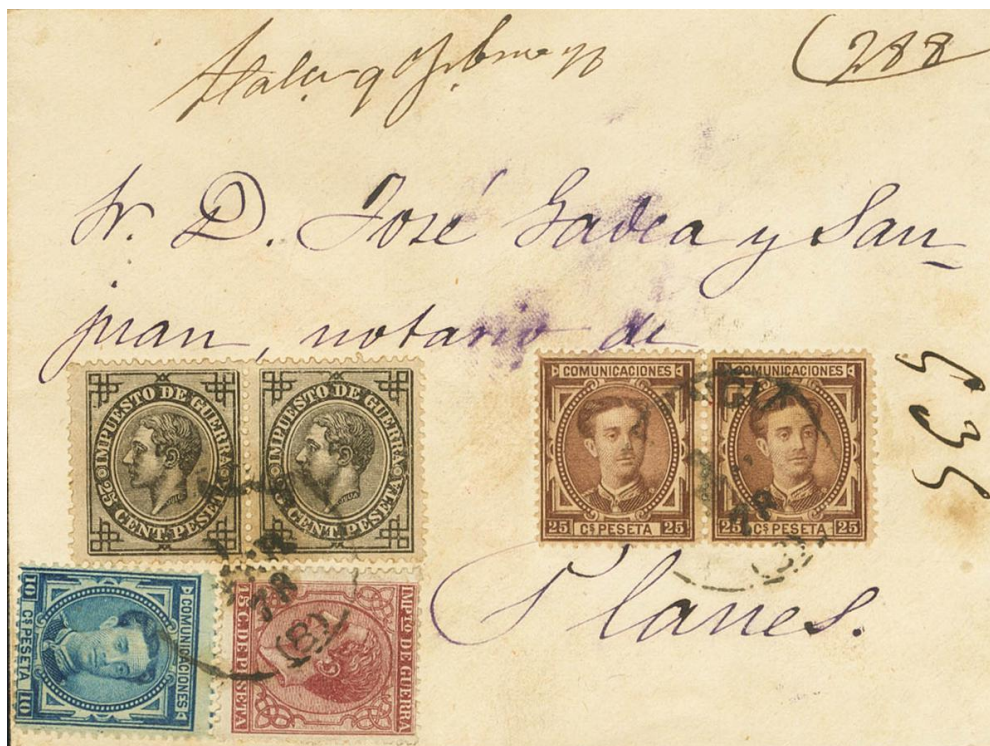 288
Sr. D. José Gadea y San-
juan, notario de
Planes.
535
IMPUESTO DE GUERRA
25 CENT. PESETA
IMPUESTO DE GUERRA
CENT. PESETA
COMUNICACIONES
25 Cs PESETA 25
COMUNICACIONES
25 Cs PESETA 25
COMUNICACIONES
10 Cs PESETA 10
IMPTO DE GUERRA
15 C. DE PESETA